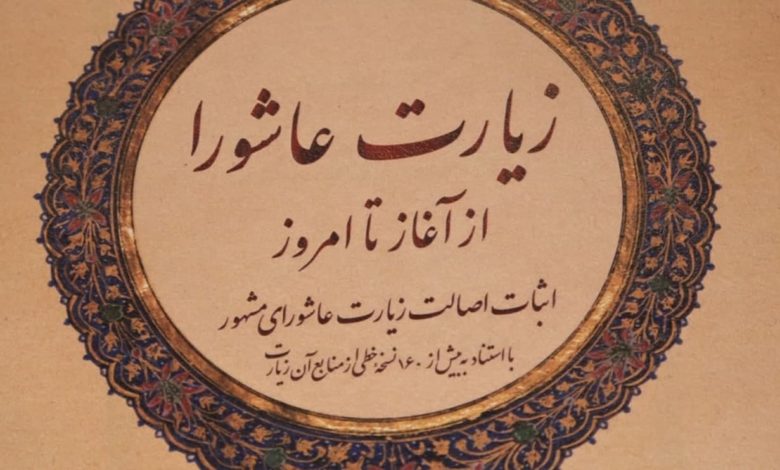 زیارت عاشورا
از آغاز تا امروز
اثبات اصالت زیارت عاشورای مشهور
با استناد به بیش از ۱۶۰ نسخهٔ خطی از منابع آن زیارت